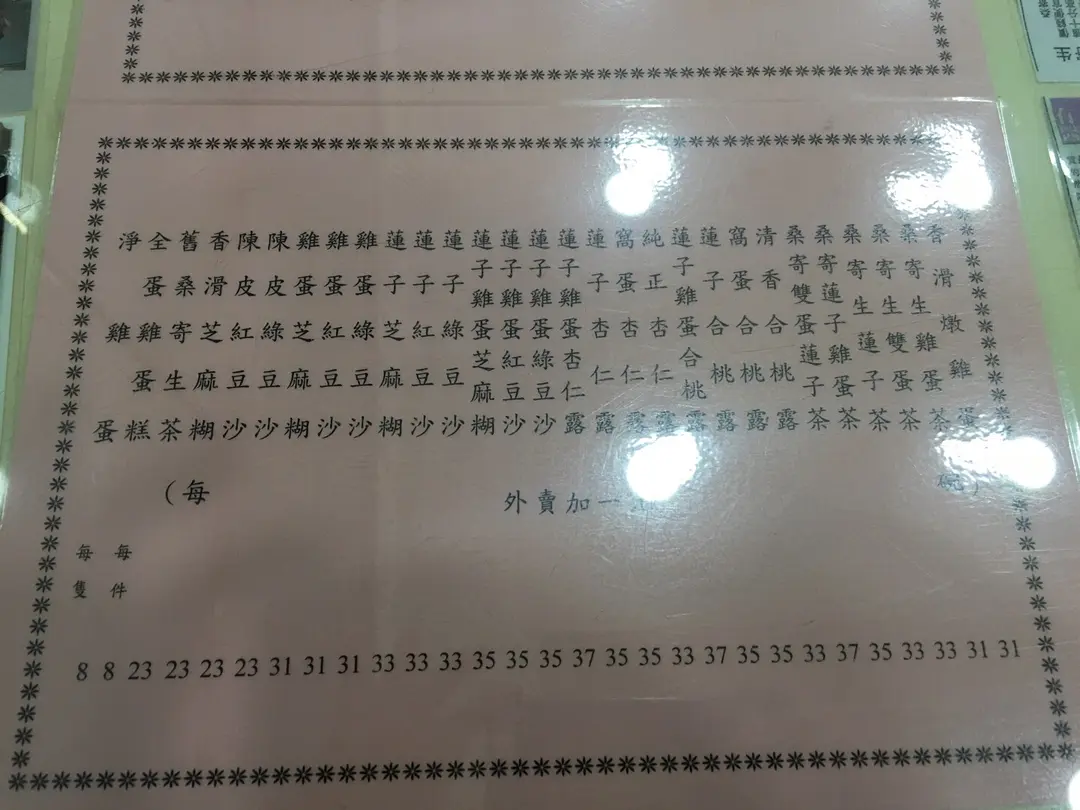 香滑燉雞蛋 31
桑寄生雞蛋茶 31
桑寄生雙蛋茶 33
桑寄生蓮子茶 33
桑寄蓮子雞蛋茶 35
桑寄雙蛋蓮子茶 37
清香合桃露 33
窩蛋合桃露 35
蓮子合桃露 35
蓮子雞蛋合桃露 37
純正杏仁露 33
窩蛋杏仁露 35
蓮子杏仁露 35
蓮子雞蛋杏仁露 37
蓮子雞蛋綠豆沙 35
蓮子雞蛋紅豆沙 35
蓮子雞蛋芝麻糊 35
蓮子綠豆沙 33
蓮子紅豆沙 33
蓮子芝麻糊 33
雞蛋綠豆沙 31
雞蛋紅豆沙 31
雞蛋芝麻糊 31
陳皮綠豆沙 23
陳皮紅豆沙 23
香滑芝麻糊 23
舊桑寄生茶 23
全蛋雞蛋糕 每件 8
淨雞蛋 每隻 8
(每 碗)
外賣加一